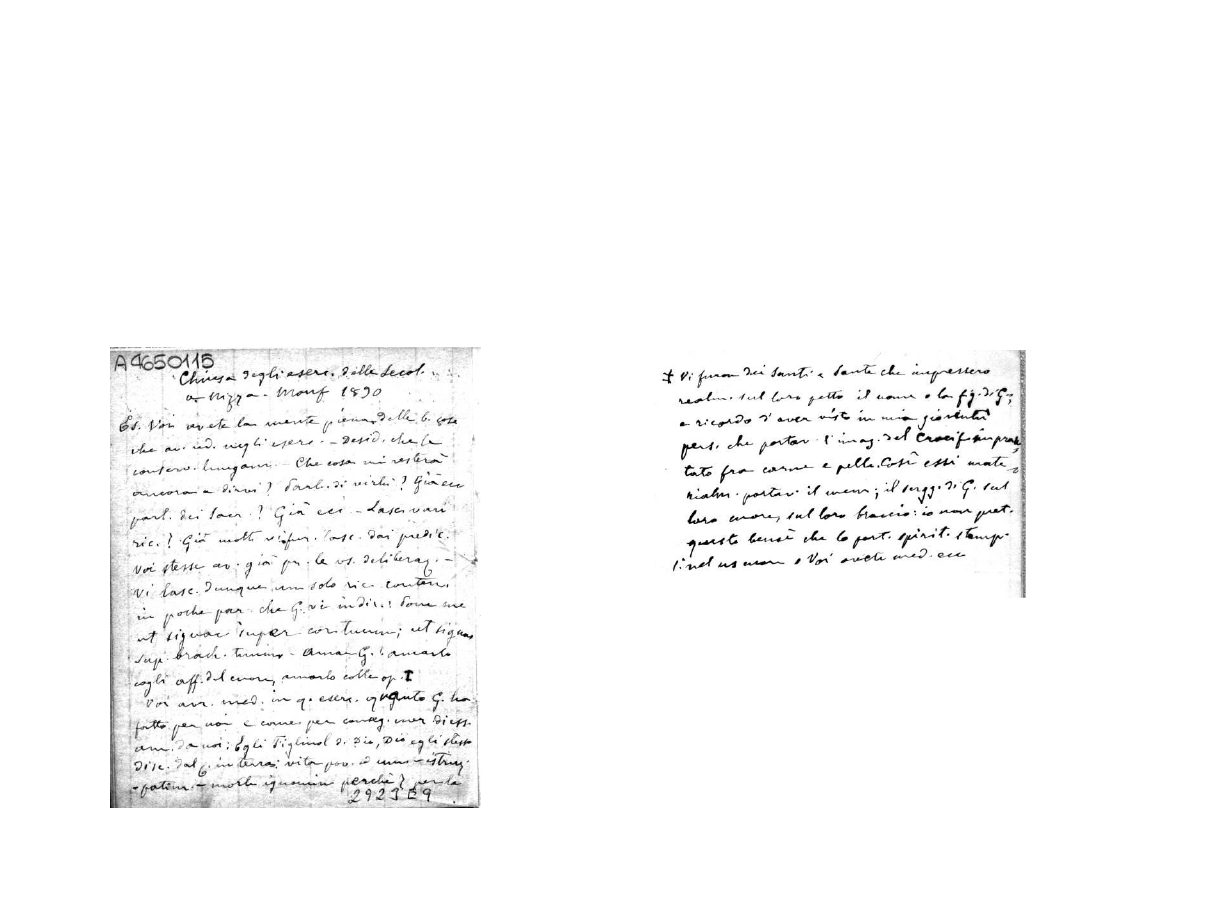 A4650115
Chiusa degli eserc. delle Secol.
a Nizza - Monf 1890
Es. Voi avete la mente piena delle b. cose
che av. ud. negli eserc. - Desid. che le
conserv. lungam. - Che cosa mi resterà
ancora a dirvi? Parl. di virtù? Già ecc
parl. dei Sacr.? Già ecc - Lasciarvi
ric.? Già molti vi fur. lasc. dai predic.
Voi stesse av. già pr. le vs. deliberaz. -
Vi lasc. dunque un solo ric. conten.
in poche par. che G. vi indir.: Pone me
ut signac. super cor tuum; ut signac
sup. brach. tuum - Amar G.: amarlo
cogli aff. del cuore, amarlo colle op. ‡
Voi av. med. in q. eserc. quanto G. ha
fatto per noi e come per conseg. mer. di ess.
am. da noi: Egli Figliuol di Dio, Dio egli stesso
disc. dal C. in terra: vita pov. ed umil - istruz.
- patim. - morte ignomin perchè? per la
2923E9
‡ Vi furon dei Santi e Sante che impressero
realm. sul loro petto il nome o la fig. di G.;
e ricordo d'aver visto in mia gioventù
pers. che portav. l'imag. del Crocifi impron
tato fra carne e pelle. Così essi mate
rialm. portav. il mem; il sugg. di G. sul
loro cuore, sul loro braccio: io non pret.
questo bensì che lo port. spirit. stamp.
nel vs cuore Voi avete med. ecc